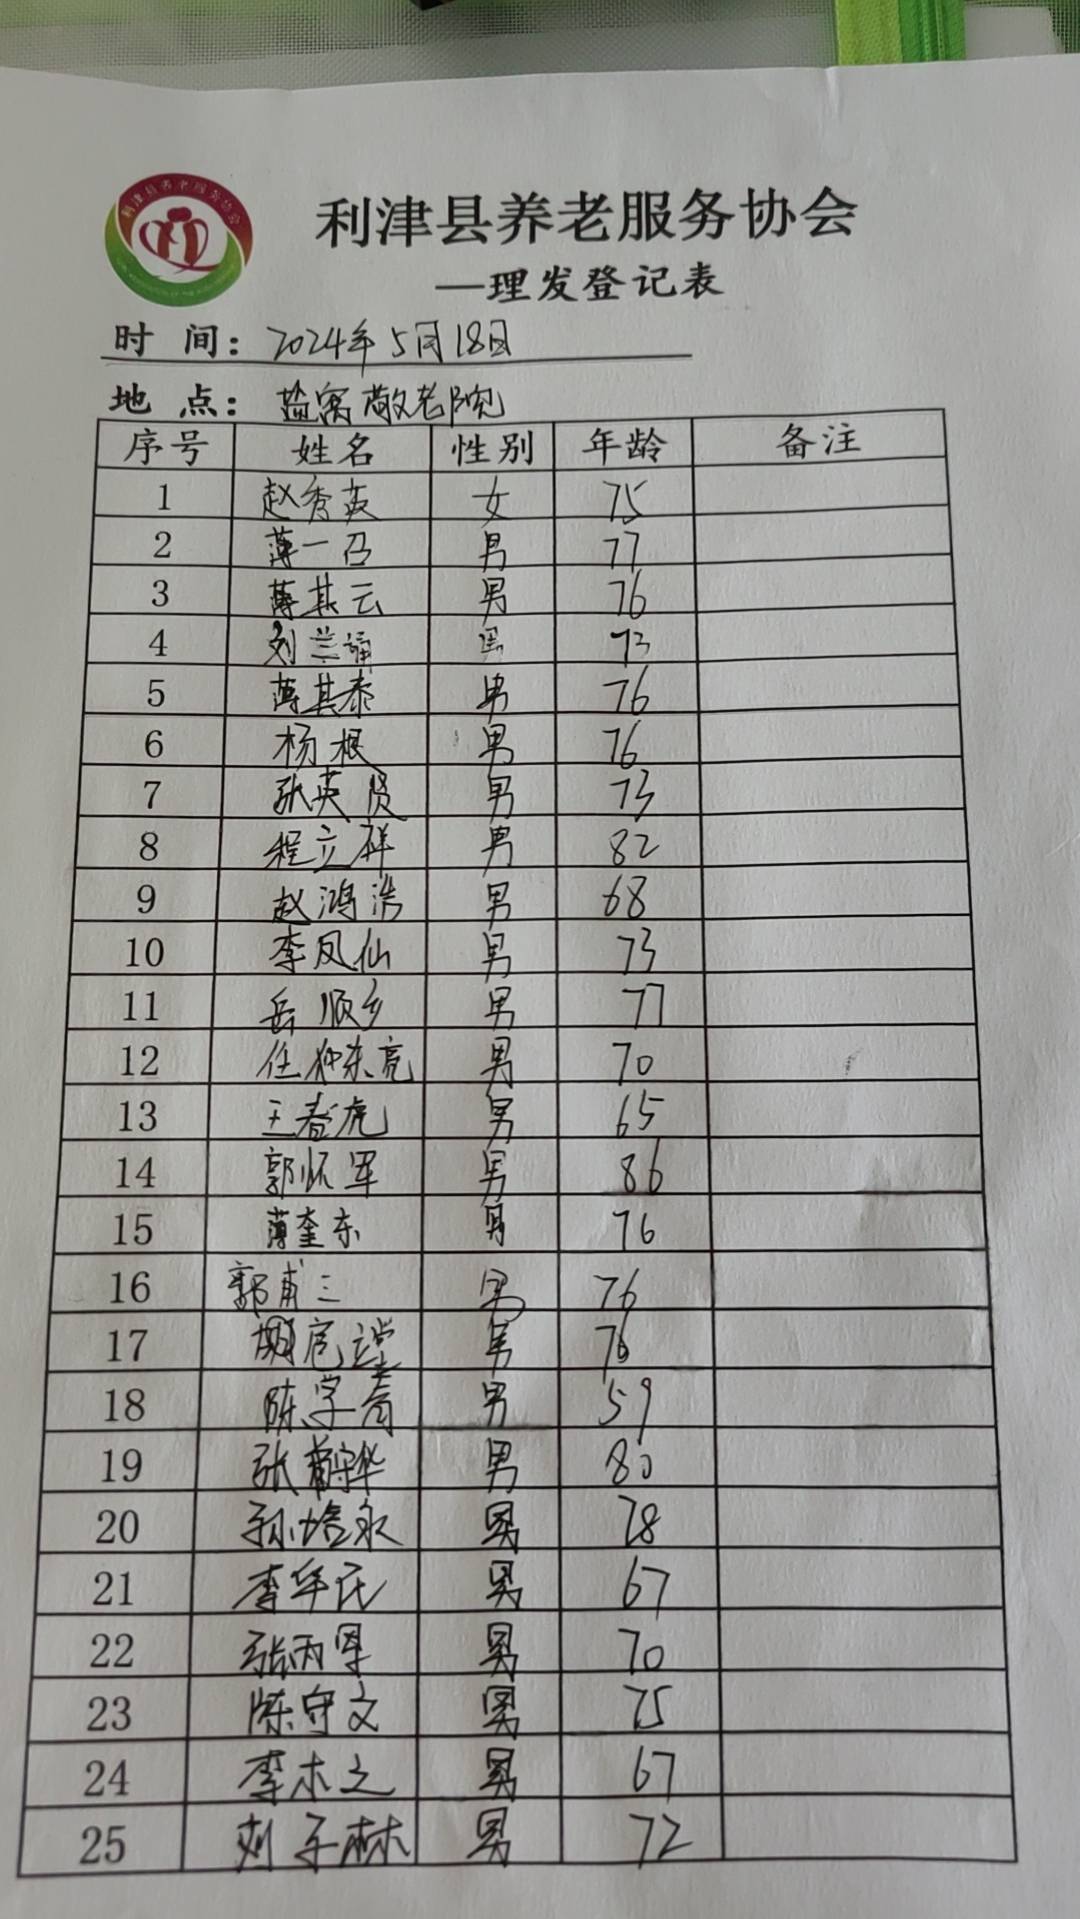 利津县养老服务协会
利津县养老服务协会
—理发登记表
时 间：2024年5月18日
地 点：盐窝敬老院
序号 姓名 性别 年龄 备注
1 赵秀英 女 75
2 薄一召 男 77
3 薄其云 男 76
4 刘兰 男 73
5 薄其泰 男 76
6 杨根 男 76
7 张英贤 男 73
8 程立祥 男 82
9 赵鸿浩 男 68
10 李凤仙 男 73
11 岳顺乡 男 77
12 任 东亮 男 70
13 王春虎 男 65
14 郭怀军 男 86
15 薄奎东 男 76
16 郭甫三 男 76
17 胡 堂 男 76
18 陈学 男 59
19 张 华 男 80
20 孙培永 男 78
21 李华民 男 67
22 张丙军 男 70
23 陈守文 男 75
24 李木之 男 67
25 刘子林 男 72